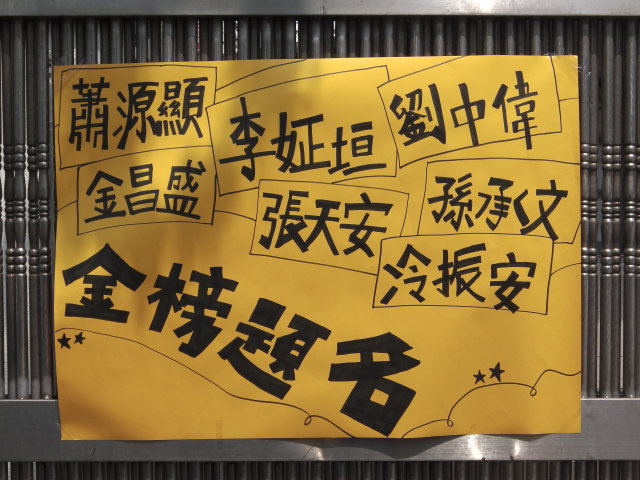 蕭源顯
李姃垣
劉中偉
金昌盛
張天安
孫承文
冷振安
金榜題名